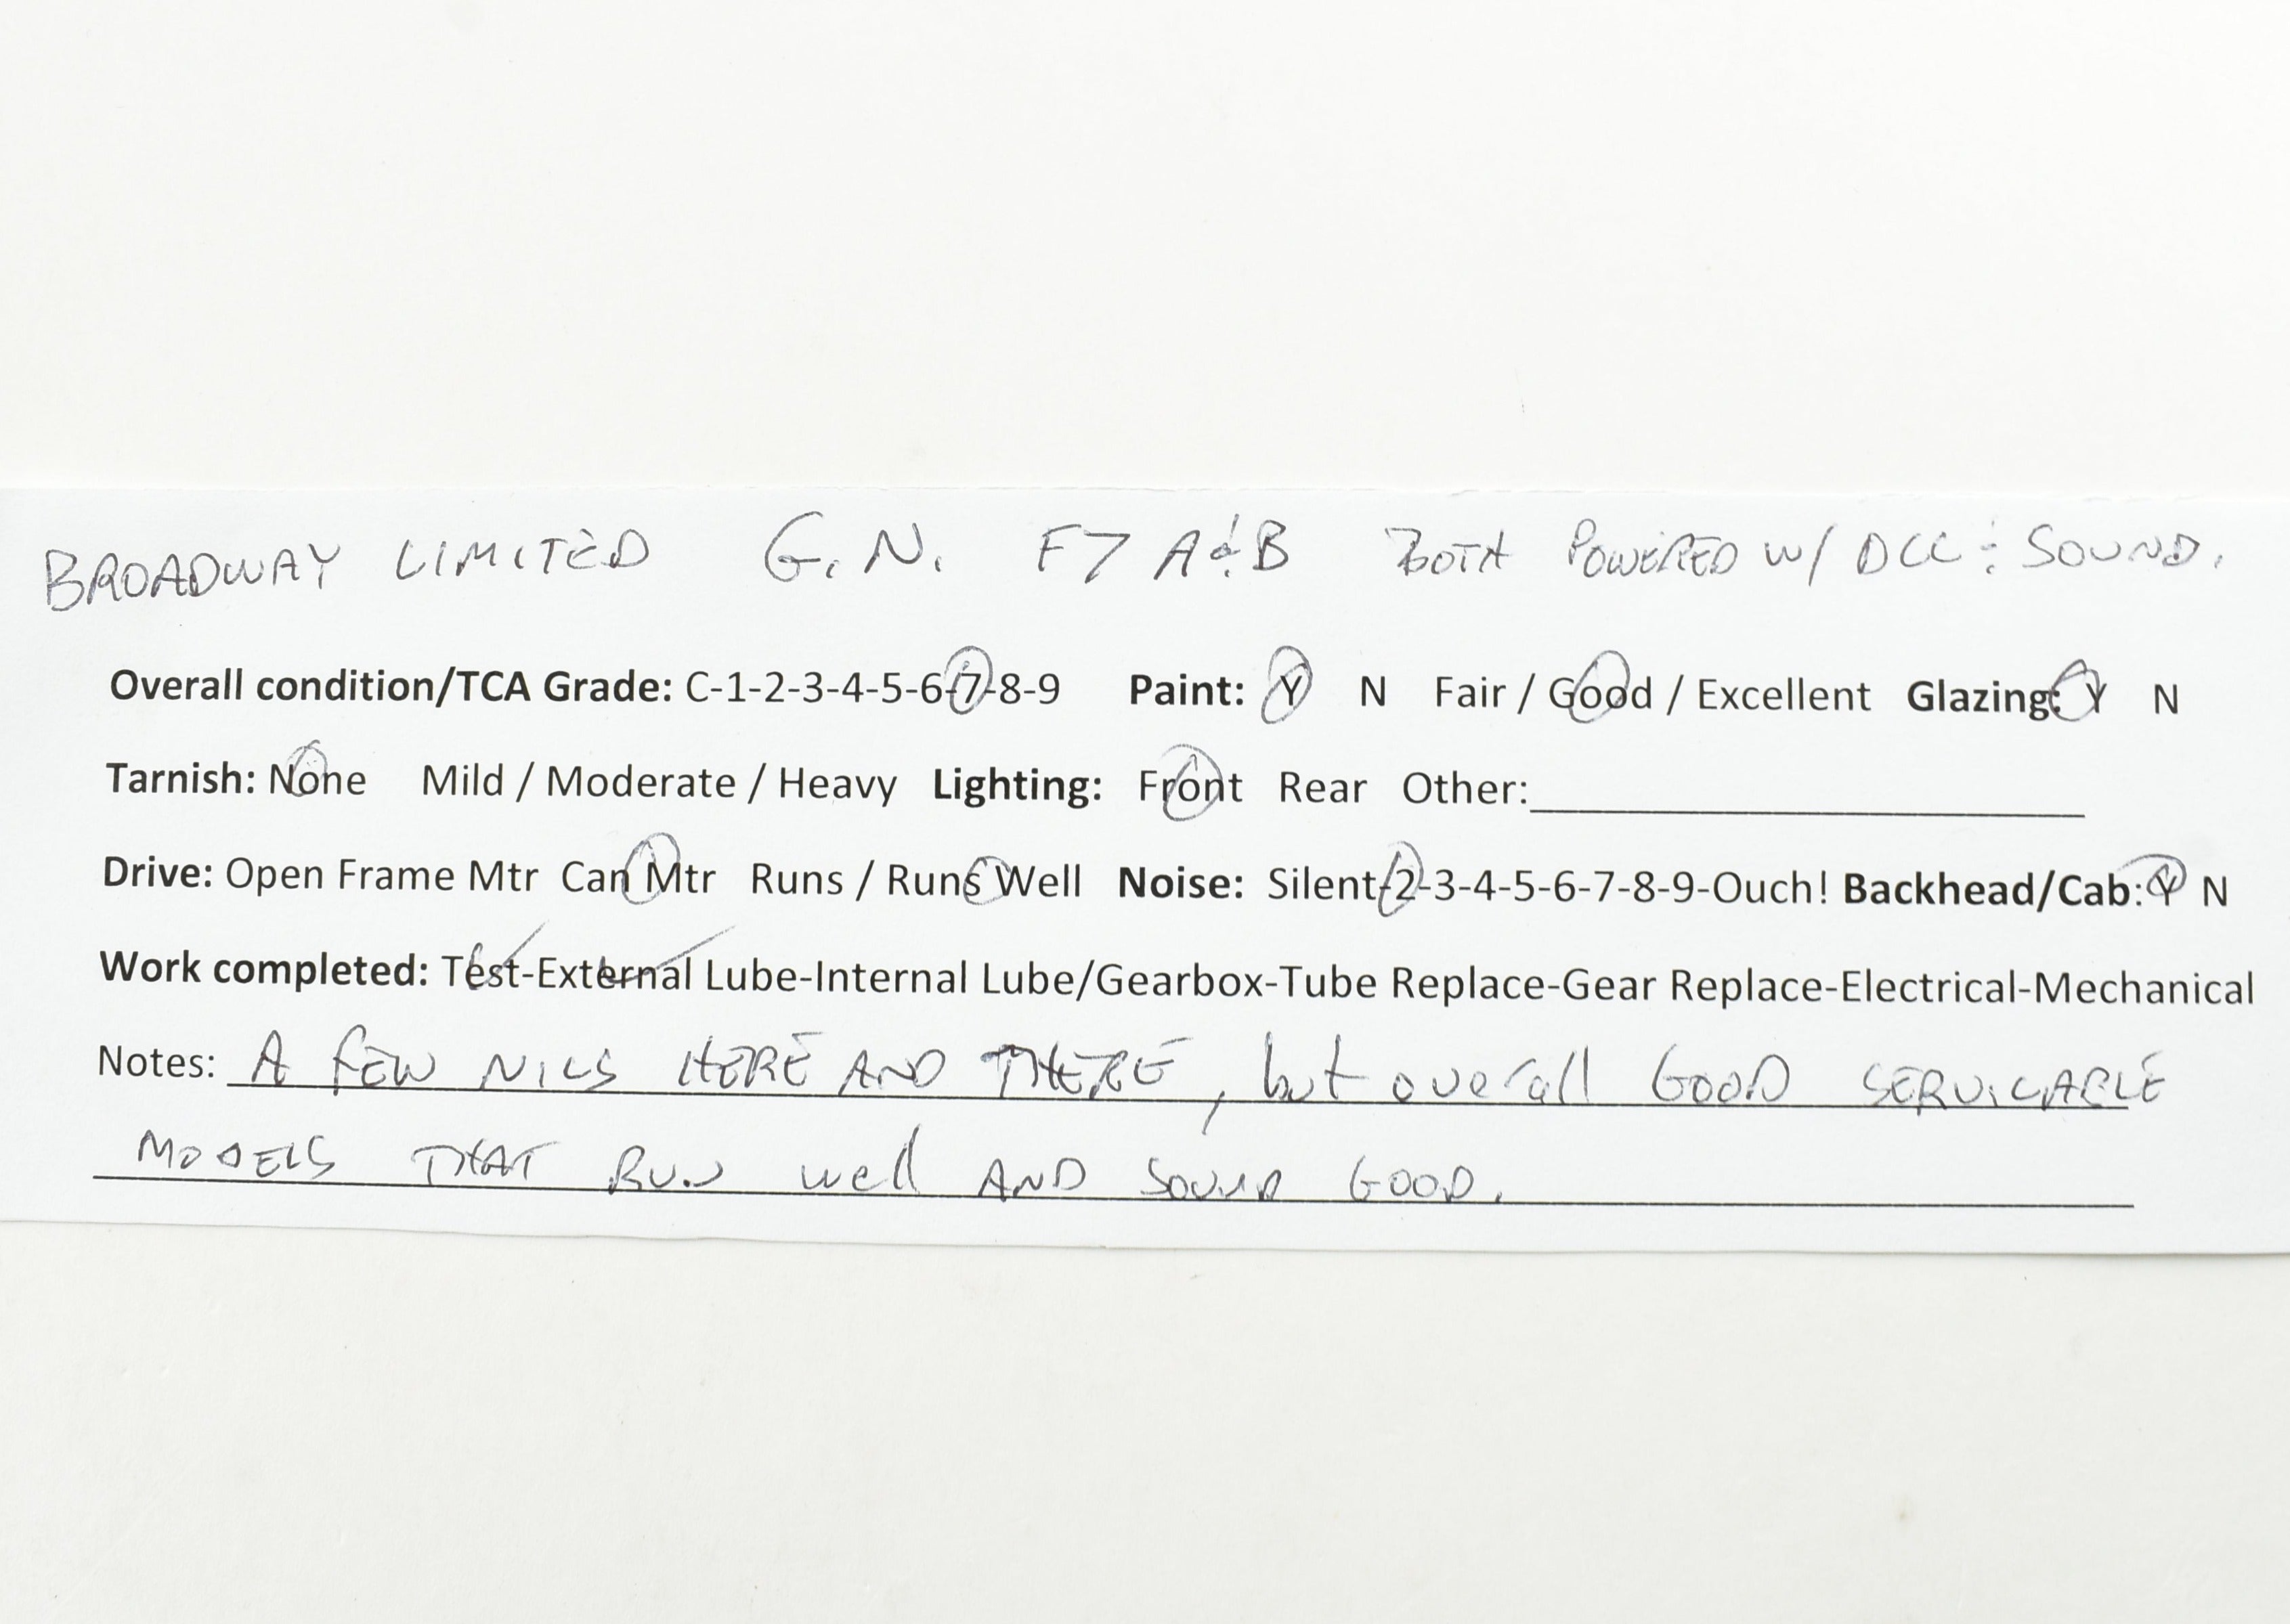 BROADWAY LIMITED G.N. F7 A&B BOTH POWERED W/ DCC & SOUND.
Overall condition/TCA Grade: C-1-2-3-4-5-6-7-8-9 Paint: Y N Fair / Good / Excellent Glazing: Y N
Tarnish: None Mild / Moderate / Heavy Lighting: Front Rear Other:
Drive: Open Frame Mtr Can Mtr Runs / Runs Well Noise: Silent-2-3-4-5-6-7-8-9-Ouch! Backhead/Cab: Y N
Work completed: Test-External Lube-Internal Lube/Gearbox-Tube Replace-Gear Replace-Electrical-Mechanical
Notes: A FEW NICS HERE AND THERE, but overall GOOD SERVICABLE
MODELS THAT RUN well AND SOUND GOOD.